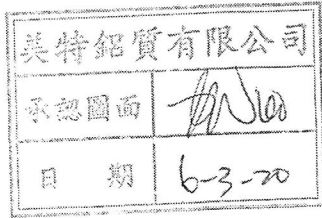 英特鋁質有限公司
承認圖面
日期 6-3-20